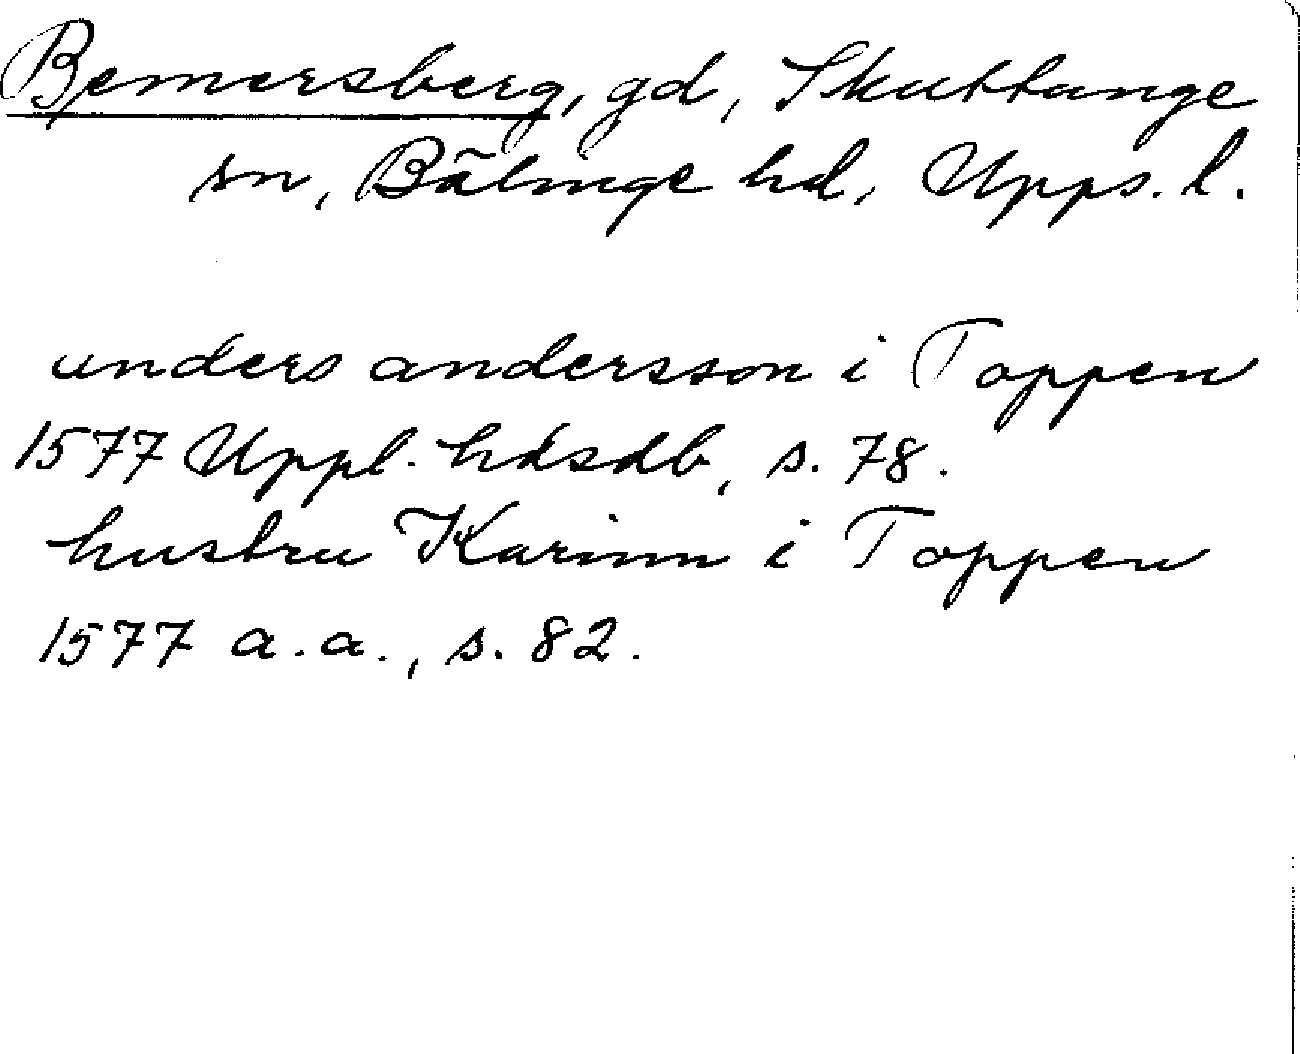 Bemersberg, gd, Skuttunge
sn, Bälinge hd, Upps. l.
anders andersson i Toppen
1577 Uppl. hdsdb, s. 78.
hustru Karinn i Toppen
1577 a.a., s. 82.